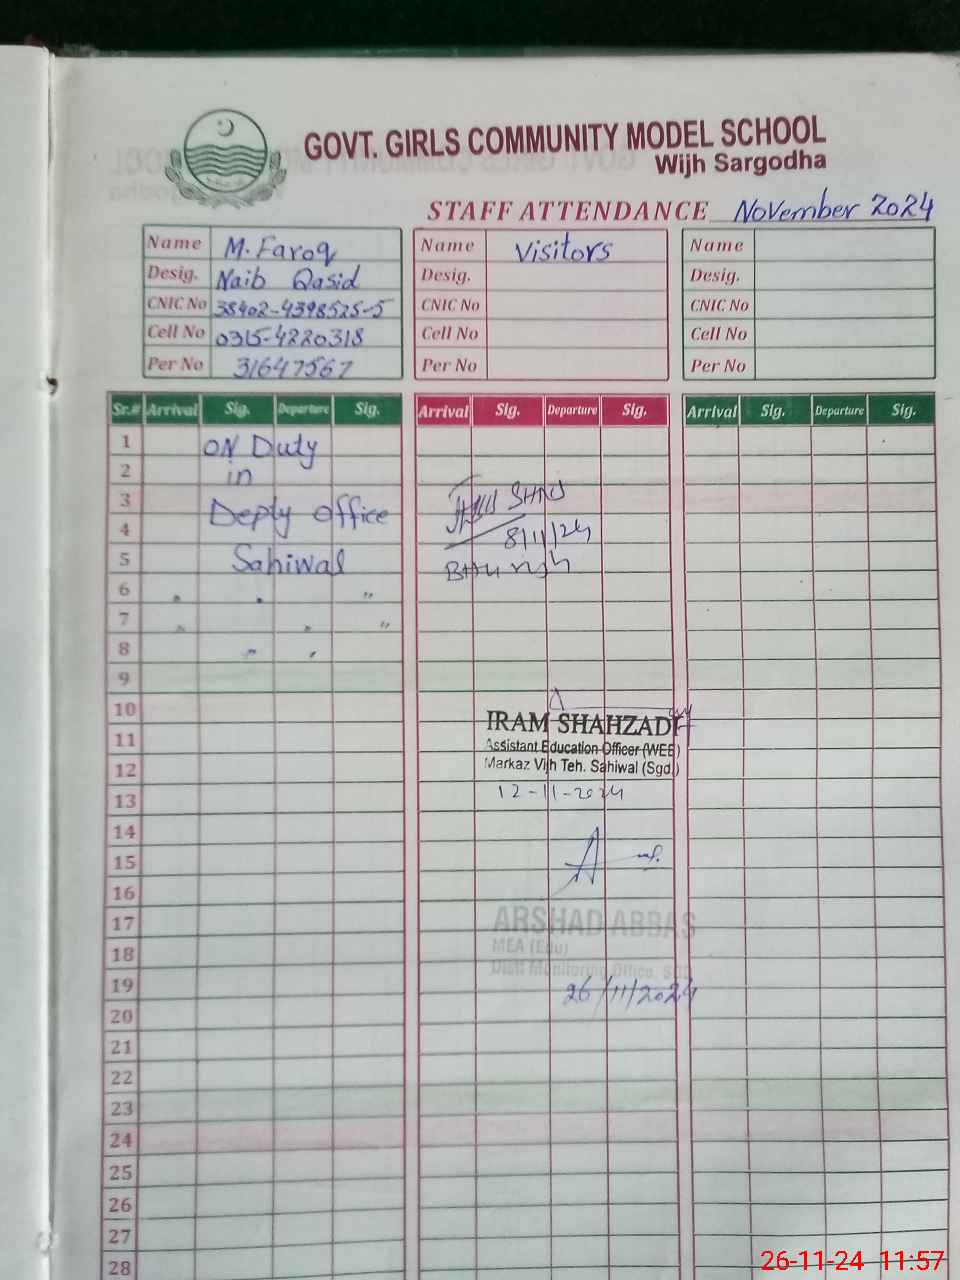 GOVT. GIRLS COMMUNITY MODEL SCHOOL
Wijh Sargodha
STAFF ATTENDANCE November 2024
Name M. Faroq
Desig. Naib Qasid
CNIC No 38402-4398525-5
Cell No 0315-4220318
Per No 31647567
Name Visitors
Desig.
CNIC No
Cell No
Per No
Name
Desig.
CNIC No
Cell No
Per No
Sr.# Arrival Sig. Departure Sig. Arrival Sig. Departure Sig. Arrival Sig. Departure Sig.
1 ON Duty
2 in
3 Deply office
4 8/11/24
5 Sahiwal
6 " " "
7 " " "
8 " "
9
10
11 IRAM SHAHZADI
Assistant Education Officer (WEE)
12 Markaz Vijh Teh. Sahiwal (Sgd.)
13 12-11-2024
14
15
16
17 ARSHAD ABBAS
18 MEA (Edu)
Distt Monitoring Office, SGD
19 26/11/2024
20
21
22
23
24
25
26
27
28
26-11-24 11:57